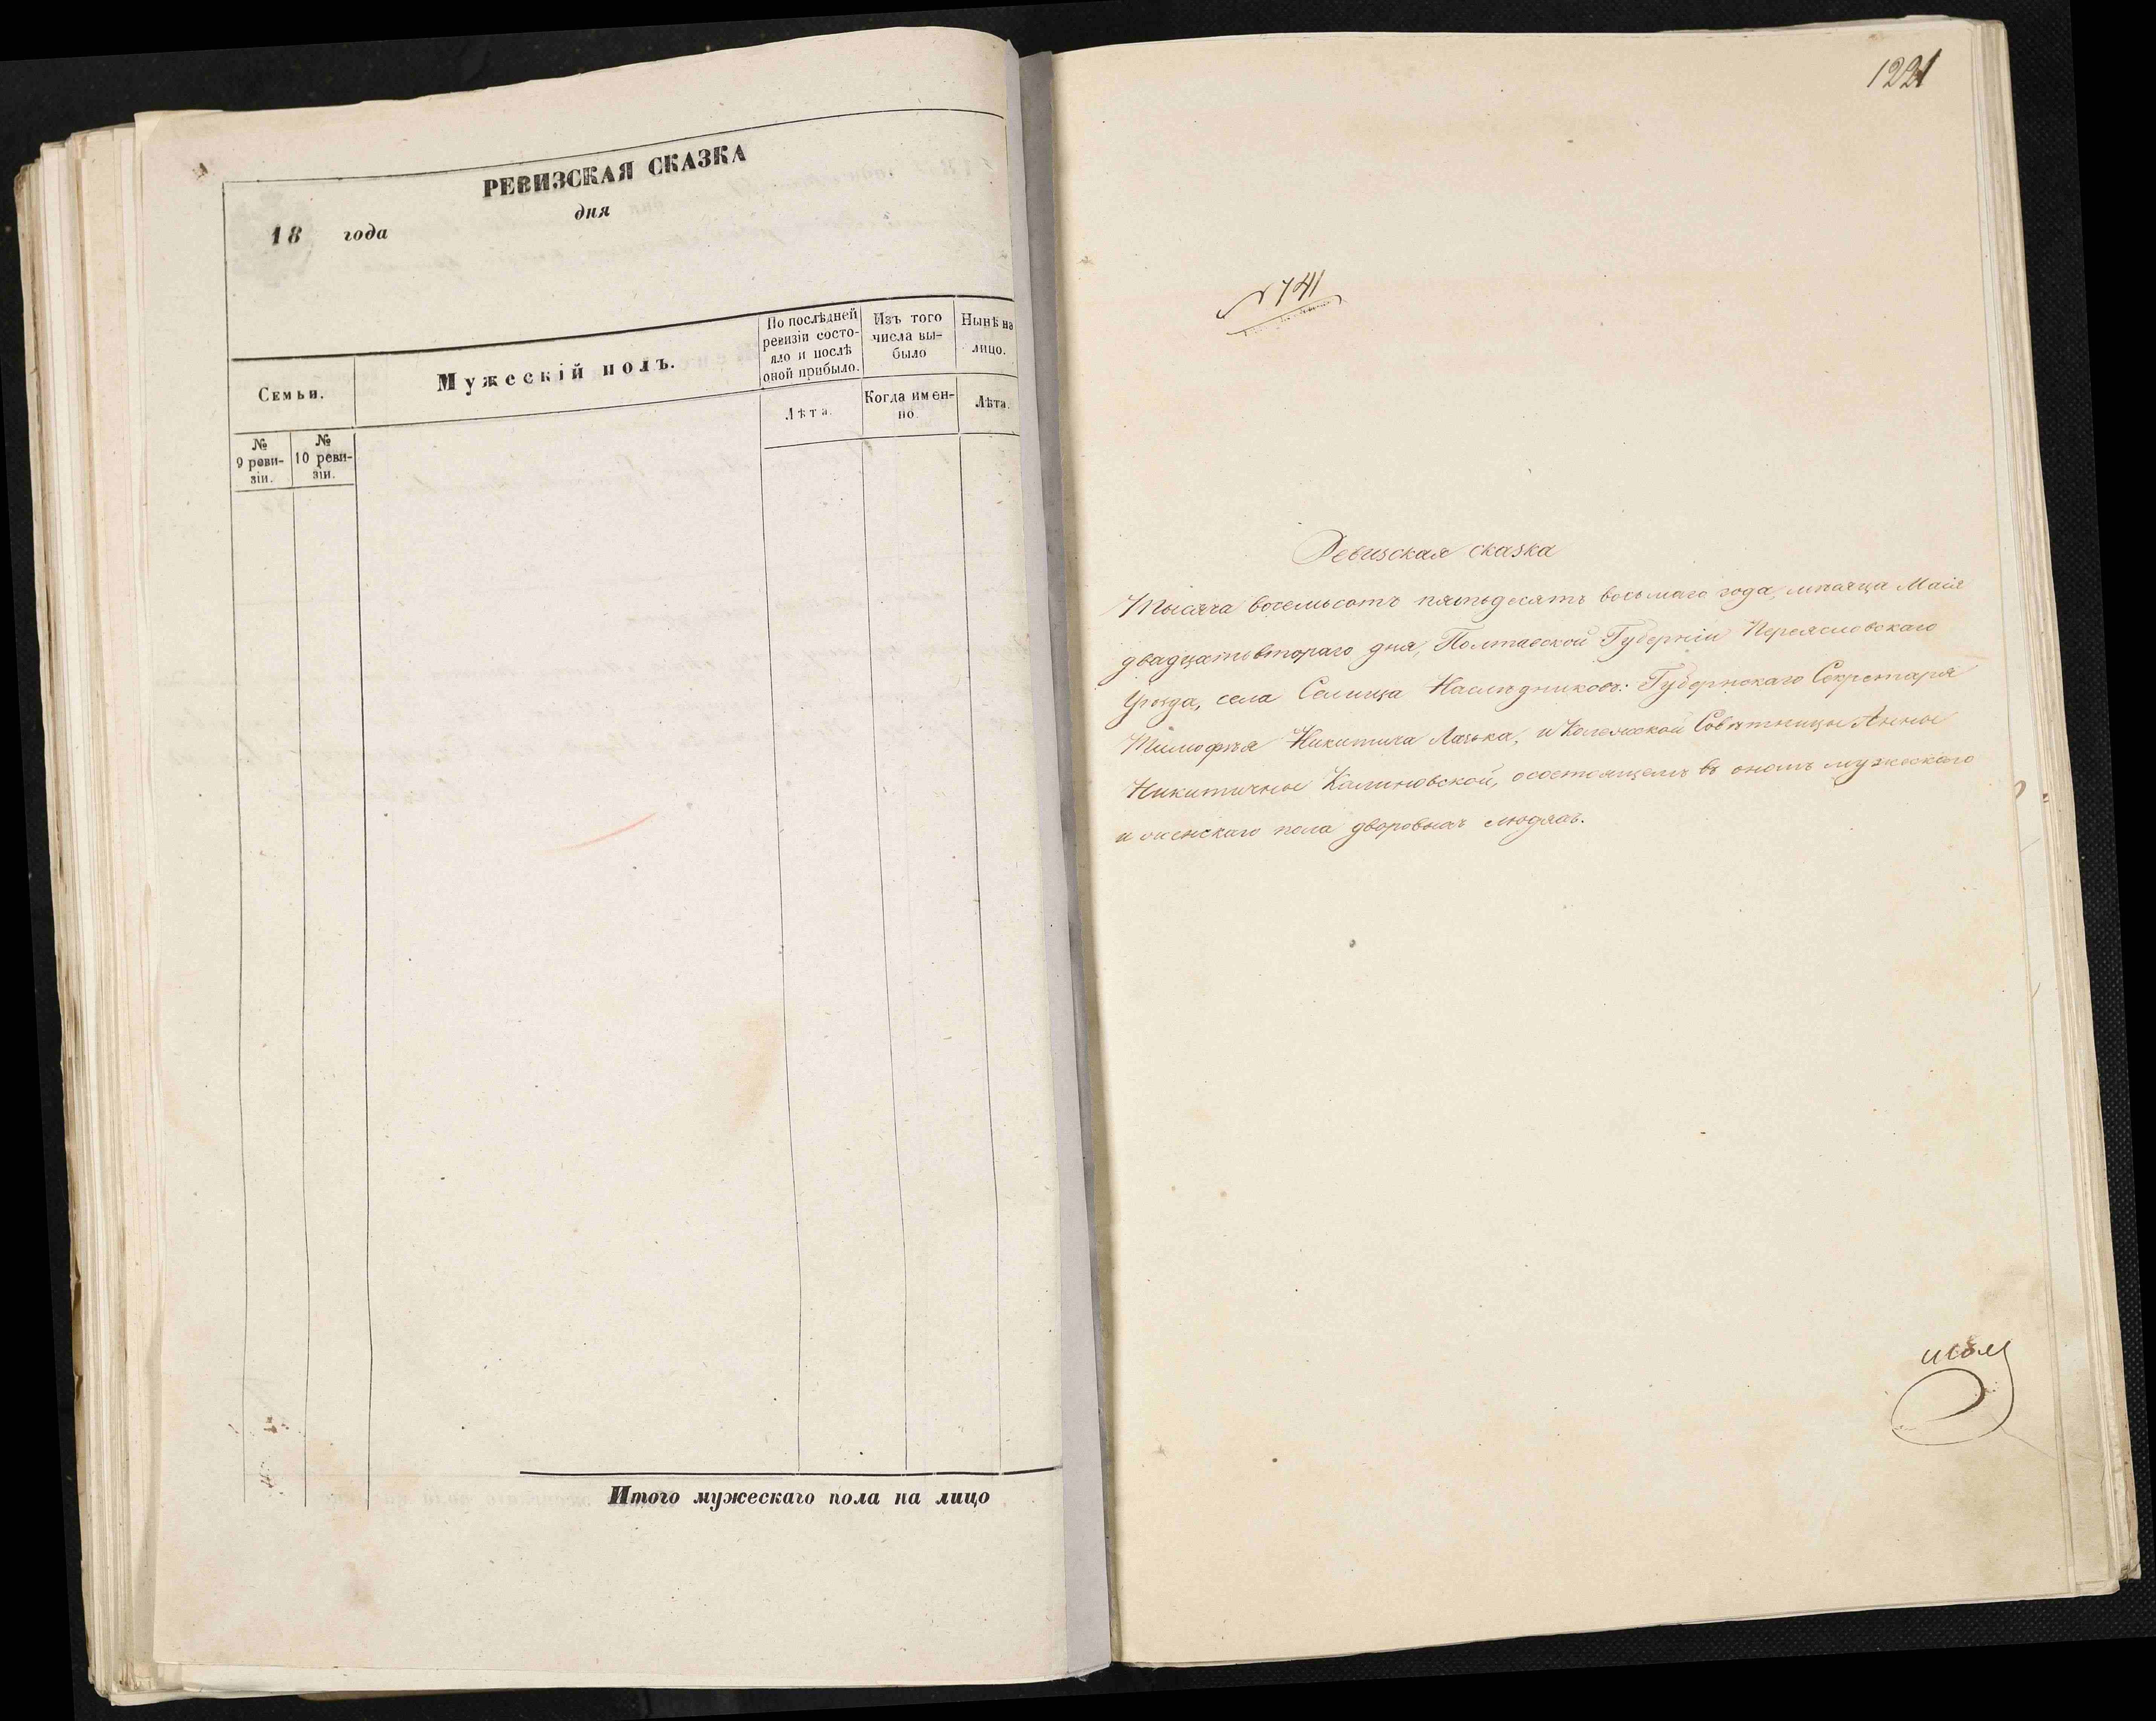 РЕВИЗСКАЯ СКАЗКА
18 года дня
Семьи.
Мужескій полъ.
По послѣдней ревизіи состояло и послѣ оной прибыло.
Изъ того числа выбыло
Нынѣ на лицо.
Лѣта.
Когда именно.
Лѣта.
№ 9 ревизіи.
№ 10 ревизіи.
Итого мужескаго пола на лицо
1221
№ 741
Ревизская сказка
Тысяча восемьсотъ пятьдесятъ восьмаго года, мѣсяца Маія
двадцать втораго дня, Полтавской Губерніи Переясловскаго
Уѣзда, села Селища Наслѣдниковъ: Губернскаго Секретаря
Тимофѣя Никитича, и Колежской Совѣтницы Анны
Никитичны Калиновской, о состоящемъ въ ономъ мужескаго
и женскаго пола дворовыхъ людяхъ.